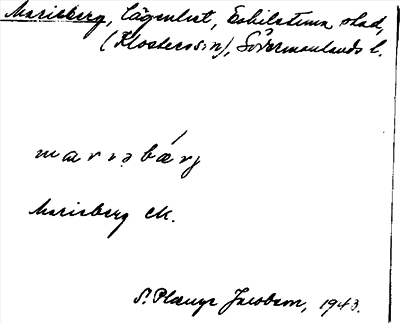 Marieberg, lägenhet, Eskilstuna stad,
(Klosters sn), Södermanlands l.
mariəbǽrj
Marieberg ek.
S. Jacobsson, 1943.